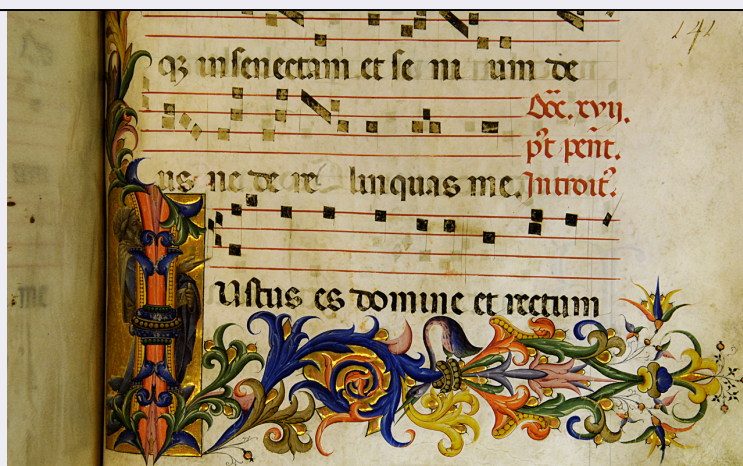 141
qꝫ in senectam et se ni um de
Doc̄. xvij.
pꝰt peñt.
us ne de re linquas me. Introitꝰ.
Iustus es domine et rectum